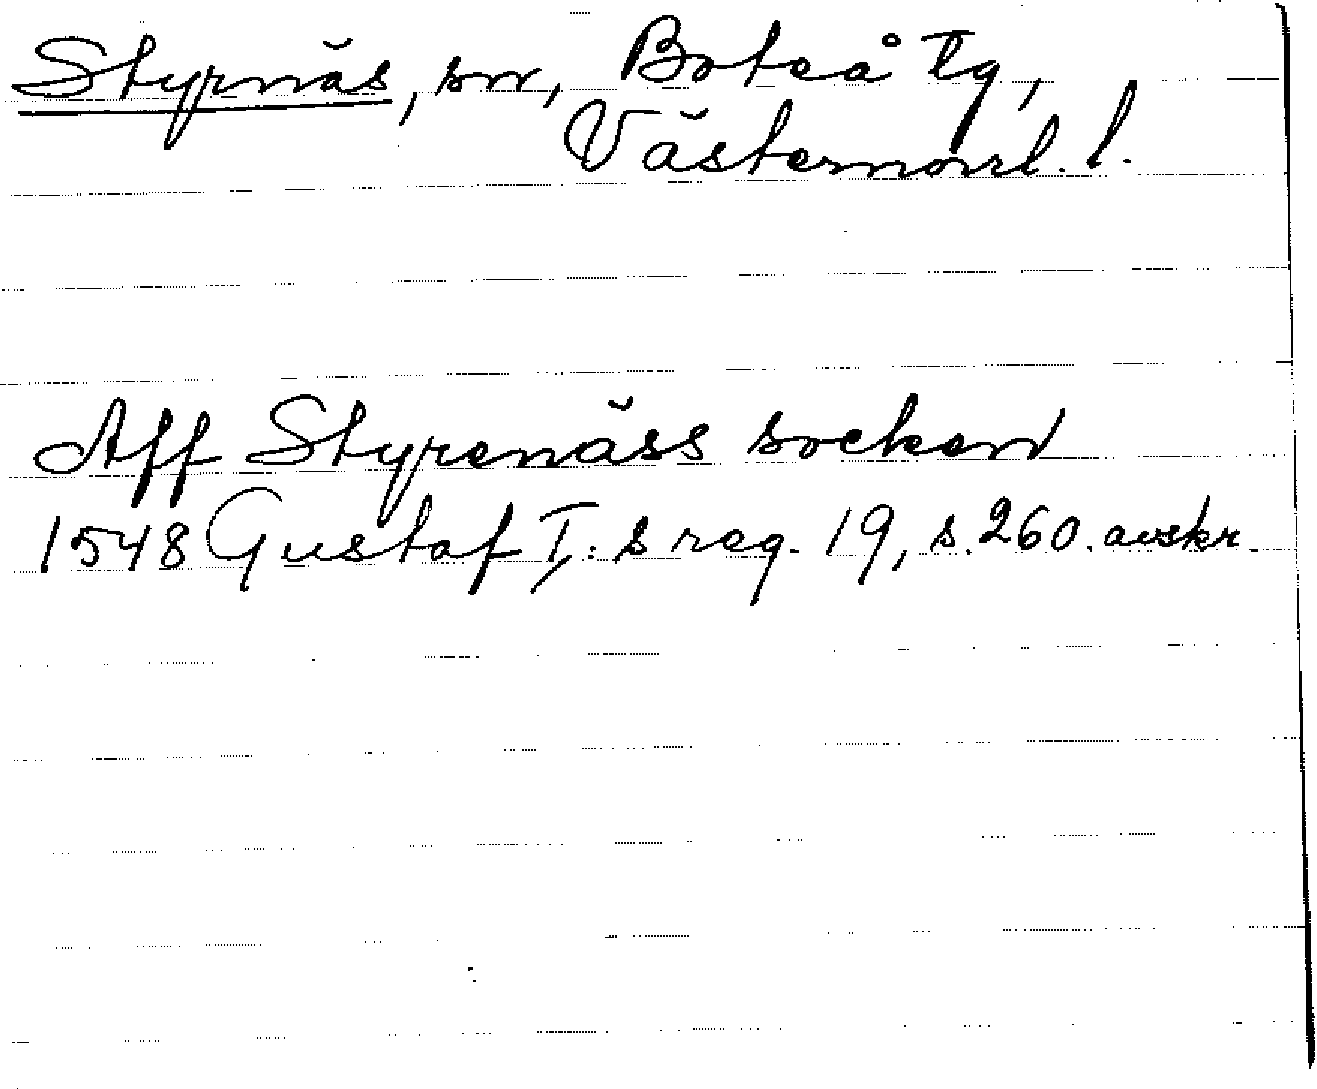 Styrnäs, sn, Boteå Tg,
Västernorrl. l.
Aff Styrenäss socken
1548 Gustaf I:s reg. 19, s. 260. avskr.